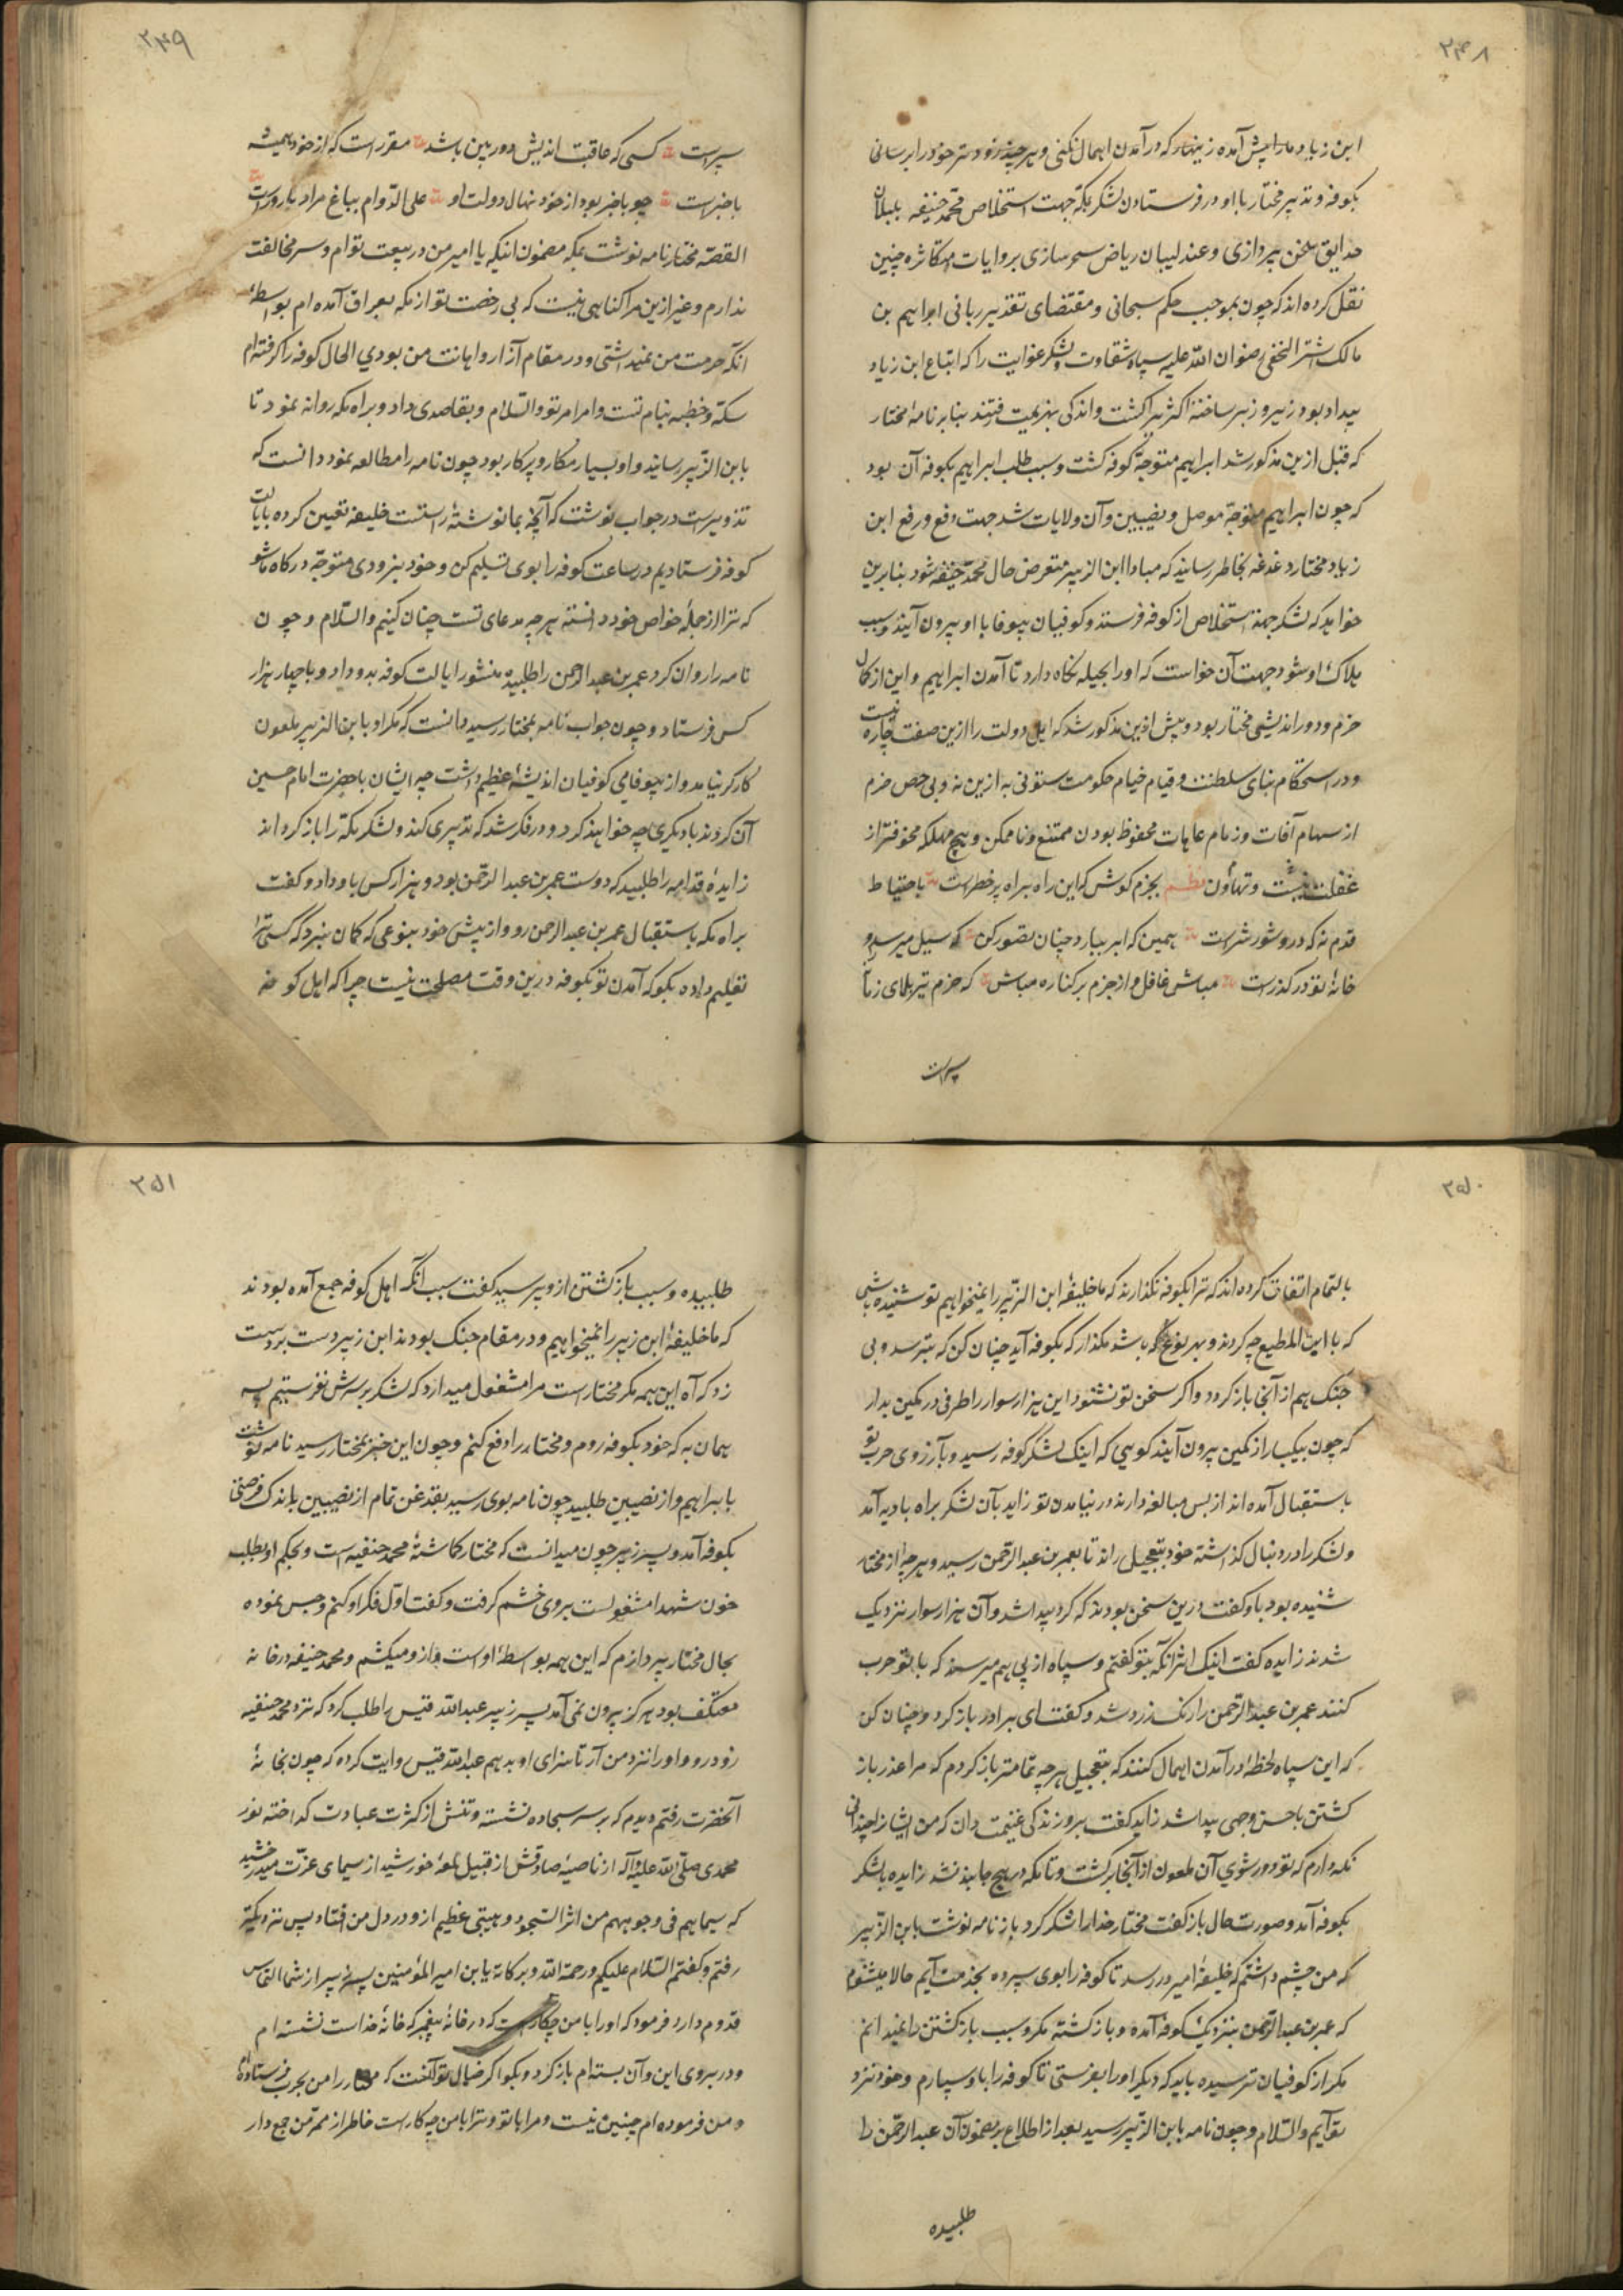 ۲۴۸
ابن زیاد ما را پیش آمده زینهار که در آمدن اهمال نکنی و هر چند زودتر خود را برسانی
بکوفه و تدبیر مختار با او در فرستادن لشکر بمکه جهت استخلاص محمد حنیفه بلبلان
حدایق سخن پردازی و عندلیبان ریاض سحرسازی بروایات متکاثره چنین
نقل کرده اند که چون بموجب حکم سبحانی و مقتضای تقدیر ربانی ابراهیم بن
مالک اشتر النخعی رضوان الله علیه سپاه شقاوت و لشکر غوایت را که اتباع ابن زیاد
بیداد بود زیر و زبر ساخته اکثر را کشت و اندکی بهزیمت رفتند بنابر نامهٔ مختار
که قبل ازین مذکور شد ابراهیم متوجه کوفه کشت و سبب طلب ابراهیم بکوفه آن بود
که چون ابراهیم متوجه موصل و نصیبین و آن ولایات شد جهت دفع و رفع ابن
زیاد مختار دغدغه بخاطر رسانید که مبادا ابن الزبیر متعرض حال محمد حنیفه شود بنابرین
خواهد که لشکر جهة استخلاص از کوفه فرستد و کوفیان بیوفا با او بیرون آیند و سبب
هلاک او شود جهت آن خواست که او را بحیله نکاه دارد تا آمدن ابراهیم و این از کمال
حزم و دوراندیشی مختار بود و پیش ازین مذکور شد که اهل دولت را ازین صفت چاره نیست
و در استحکام بنای سلطنت و قیام خیام حکومت ستونی به ازین نه و بی حصن حزم
از سهام آفات و زمام عاهات محفوظ بودن ممتنع و ناممکن و هیچ مهلکه مخوفتر از
غفلت نیست و تهاون نظم بحزم کوش که این راه براه پر خطرست باحتیاط
قدم نه که درو شور شرست همین که ابر ببارد چنان تصور کن که سیل میرسد و
خانهٔ تو در کذرست مباش غافل و از حزم بر کناره مباش که حزم تیر بلای زمانه
سپرست
۲۴۹
سپرست کسی که عاقبت اندیش و دوربین باشد مقررست که از خود همیشه
باخبرست چو باخبر بود از خود نهال دولت او علی الدوام بباغ مراد بارورست
القصه مختار نامه نوشت بمکه مضمون اینکه یا امیر من در بیعت توام و سر مخالفت
ندارم و غیر ازین مرا کناهی نیست که بی رخصت تو از مکه بعراق آمده ام بواسطهٔ
انکه حرمت من نمیداشتی و در مقام آزار و اهانت من بودی الحال کوفه را کرفته ام
سکه و خطبه بنام تست و امر امر تو و السلام و بقاصدی داد و براه مکه روانه نمود تا
بابن الزبیر رسانید و او بسیار مکار و پرکار بود چون نامه را مطالعه نمود دانست که
تزویرست در جواب نوشت که آنچه بما نوشتهٔ راستست خلیفه تعیین کرده بایالت
کوفه فرستادیم در ساعت کوفه را بوی تسلیم کن و خود بزودی متوجه درکاه ما شو
که ترا از جملهٔ خواص خود دانسته هر چه مدعای تست چنان کنیم و السلام و چون
نامه را روان کرد عمر بن عبد الرحمن را طلبیده منشور ایالت کوفه بدو داد و با چهار هزار
کس فرستاد و چون جواب نامه بمختار رسید دانست که مکر او با بن الزبیر ملعون
کارکر نیامد و از بیوفایی کوفیان اندیشهٔ عظیم داشت چه ایشان با حضرت امام حسین
آن کردند با دیکری چه خواهند کرد و در فکر شد که تدبیری کند و لشکر مکه را باز کرداند
زایدهٔ قدامه را طلبید که دوست عمر بن عبد الرحمن بود و هزار کس باو داد و کفت
براه مکه باستقبال عمر بن عبد الرحمن رو و از پیش خود بنوعی که کمان نبرد که کسی ترا
تعلیم داده بکو که آمدن تو بکوفه درین وقت مصلحت نیست چرا که اهل کوفه
۲۵۰
بالتمام اتفاق کرده اند که ترا بکوفه نکذارند که ما خلیفهٔ ابن الزبیر را نمیخواهیم تو شنیده باشی
که با ابن المطیع چه کردند و بهر نوع که باشد مکذار که بکوفه آید چنان کن که بترسد و بی
جنک هم از آنجا باز کردد و اکر سخن تو نشنود این هزار سوار را طرفی در کمین بدار
که چون بیکبار از کمین بیرون آیند کویی که اینک لشکر کوفه رسید و بآرزوی حرب تو
باستقبال آمده اند از بس مبالغه دارند در نیامدن تو زاید بآن لشکر براه بادیه آمد
و لشکر را در دنبال کذاشته خود بتعجیل راند تا بعمر بن عبد الرحمن رسید و هر چه از مختار
شنیده بود باو کفت درین سخن بودند که کرد پیدا شد و آن هزار سوار نزدیک
شدند زایده کفت اینک اثر آنکه بتو کفتم و سپاه از پی هم میرسند که با تو حرب
کنند عمر بن عبد الرحمن را رنک زرد شد و کفت ای برادر باز کرد و چنان کن
که این سپاه لحظهٔ در آمدن اهمال کنند که بتعجیل هر چه تمامتر باز کردم که مرا عذر باز
کشتن باحسن وجهی پیدا شد زاید کفت برو زندکی غنیمت دان که من ایشانرا چندانی
نکه دارم که تو دور شوی آن ملعون از آنجا برکشت و تا مکه در هیچ جا بند نشد زایده با لشکر
بکوفه آمد و صورت حال باز کفت مختار خدا را شکر کرد باز نامه نوشت بابن الزبیر
که من چشم داشتم که خلیفهٔ امیر در رسد تا کوفه را بوی سپرده بخدمت آیم حالا میشنوم
که عمر بن عبد الرحمن بنزدیک کوفه آمده و باز کشته مکر و سبب باز کشتن را نمیدانم
مکر از کوفیان ترسیده باید که دیکر او را بفرستی تا کوفه را باو سپارم و خود نزد
تو آیم و السلام و چون نامه بابن الزبیر رسید بعد از اطلاع بر مضمون آن عبد الرحمن را
طلبیده
۲۵۱
طلبیده و سبب باز کشتن ازو پرسید کفت سبب آنکه اهل کوفه جمع آمده بودند
که ما خلیفهٔ ابن زبیر را نمیخواهیم و در مقام جنک بودند ابن زبیر دست بر دست
زد که آه این همه مکر مختارست مرا مشغول میدارد که لشکر بر سرش نفرستیم پس
همان به که خود بکوفه روم و مختار را دفع کنم و چون این خبر بمختار رسید نامه نوشت
بابراهیم و از نصیبین طلبید چون نامه بوی رسید بقدغن تمام از نصیبین باندک فرصتی
بکوفه آمد و پسر زبیر چون میدانست که مختار کماشتهٔ محمد حنفیه است و بحکم او بطلب
خون شهدا مشغولست بروی خشم کرفت و کفت اول فکر او کنم و حبس نموده
بحال مختار پردازم که این همه بواسطهٔ اوست و ازو میکشم و محمد حنیفه در خانه
معتکف بود هرکز بیرون نمی آمد پسر زبیر عبد الله قیس را طلب کرد که نزد محمد حنفیه
زود رو و او را نزد من آر تا سزای او بدهم عبد الله قیس روایت کرده که چون بخانهٔ
آنحضرت رفتم دیدم که بر سر سجاده نشسته و تنش از کثرت عبادت کداخته نور
محمدی صلی الله علیه و آله از ناصیهٔ صادقش از قبیل لمعهٔ خورشید از سیمای عزت میدرخشید
که سیماهم فی وجوههم من اثر السجود و هیبتی عظیم ازو در دل من افتاد پس نزدیکتر
رفتم و کفتم السلام علیکم و رحمة الله و برکاته یا بن امیر المؤمنین پسر زبیر از شما التماس
قدوم دارد فرمود که او را با من چکارست که در خانهٔ پیغمبر که خانهٔ خداست نشسته ام
و در بروی این و آن بسته ام باز کرد و بکو اکر خیال تو آنست که مختار را من بحرب فرستاده ام
و من فرموده ام چنین نیست و مرا با تو و ترا با من چه کارست خاطر از ممر من جمع دار